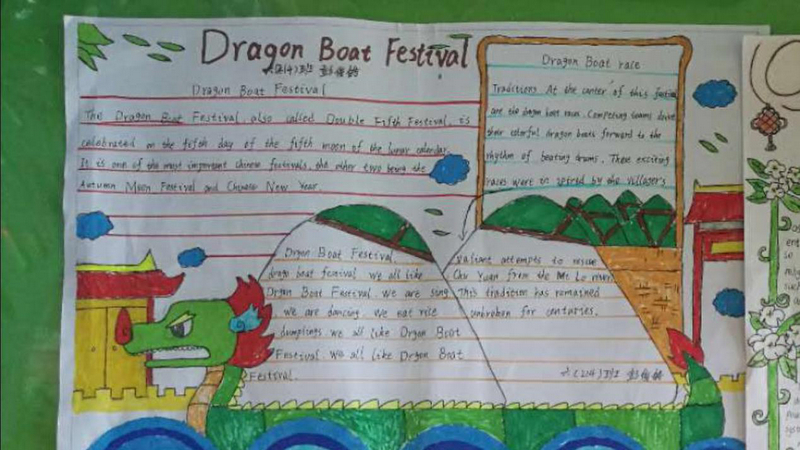 Dragon Boat Festival
Dragon Boat Festival
The Dragon Boat Festival, also called Double Fifth Festival, is
celebrated on the fifth day of the fifth moon of the lunar calendar.
It is one of the most important Chinese festivals, the other two being the
Autumn Moon Festival and Chinese New Year.
Dragon Boat race
Traditions At the center of this festival
are the dragon boat races. Competing teams drive
their colorful dragon boats forward to the
rhythm of beating drums. These exciting
races were in spired by the villager's
valiant attempts to rescue
Chu Yuan from the Mi Lo river.
This tradition has remained
unbroken for centuries.
Drgon Boat Festival.
drago boat festival we all like
Drgon Boat Festival we are sing
we are dancing we eat rice
dumplings we all like Drgon Boat
Festival. We all like Drgon Boat
Festival.